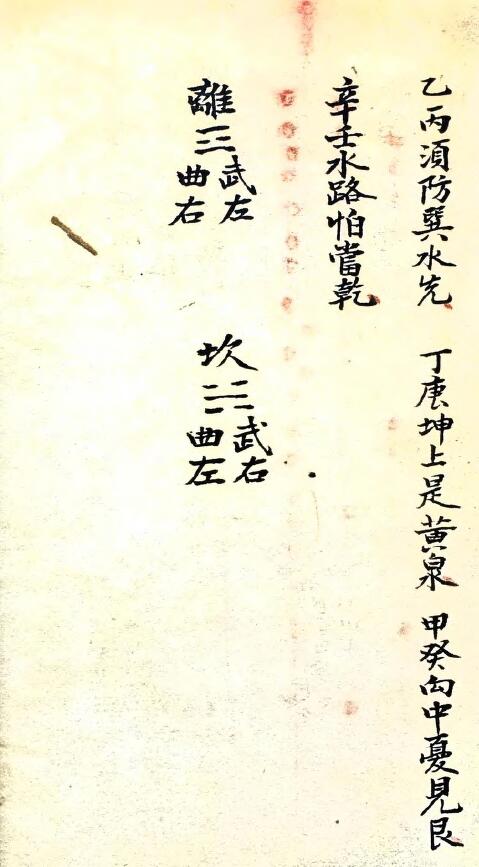 乙丙湏防巽水先　丁庚坤上是黄泉　甲癸向中憂見艮
辛壬水路怕當乾
離
三
武左
曲右
坎
武右
曲左